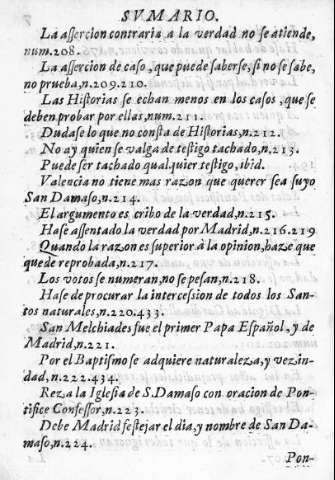 SVMARIO.
La assercion contraria a la verdad no se atiende,
num.208.
La assercion de caso, que puede saberse, si no se sabe,
no prueba, n.209.210.
Las Historias se echan menos en los casos, que se
deben probar por ellas, num.211.
Dudase lo que no consta de Historias, n.212.
No ay quien se valga de testigo tachado, n.213.
Puede ser tachado qualquier testigo, ibid.
Valencia no tiene mas razon que querer sea suyo
San Damaso, n.214.
El argumento es cribo de la verdad, n.215.
Hase assentado la verdad por Madrid, n.216.219
Quando la razon es superior à la opinion, haze que
quede reprobada, n.217.
Los votos se numeran, no se pesan, n.218.
Hase de procurar la intercession de todos los San-
tos naturales, n.220.433.
San Melchiades fue el primer Papa Español, y de
Madrid, n.221.
Por el Baptismo se adquiere naturaleza, y vezin-
dad, n.222.434.
Reza la Iglesia de S.Damaso con oracion de Pon-
tifice Confessor, n.223.
Debe Madrid festejar el dia, y nombre de San Da-
maso, n.224.
Pon-